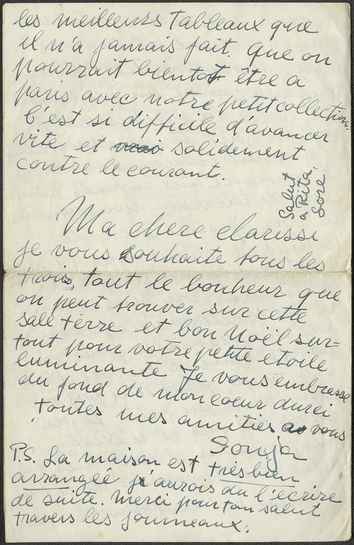 les meilleurs tableaux que
il n'a jamais fait. que on
pourrait bientot être a
paris avec notre petit collection.
C'est si difficile d'avancer
vite et solidement
contre le courant.
Salut
a Rita.
Sore
Ma chere clarisse
je vous souhaite tous les
trois, tout le bonheur que
on peut trouver sur cette
sale terre et bon Noël sur=
tout pour votre petite etoile
luminante. Je vous embrasse
du fond de mon coeur durci
toutes mes amitiés a vous
Sonja
P.S. La maison est très bien
arrangée j'aurois du l'écrire
de suite. Merci pour ton salut
travers les journeaux.